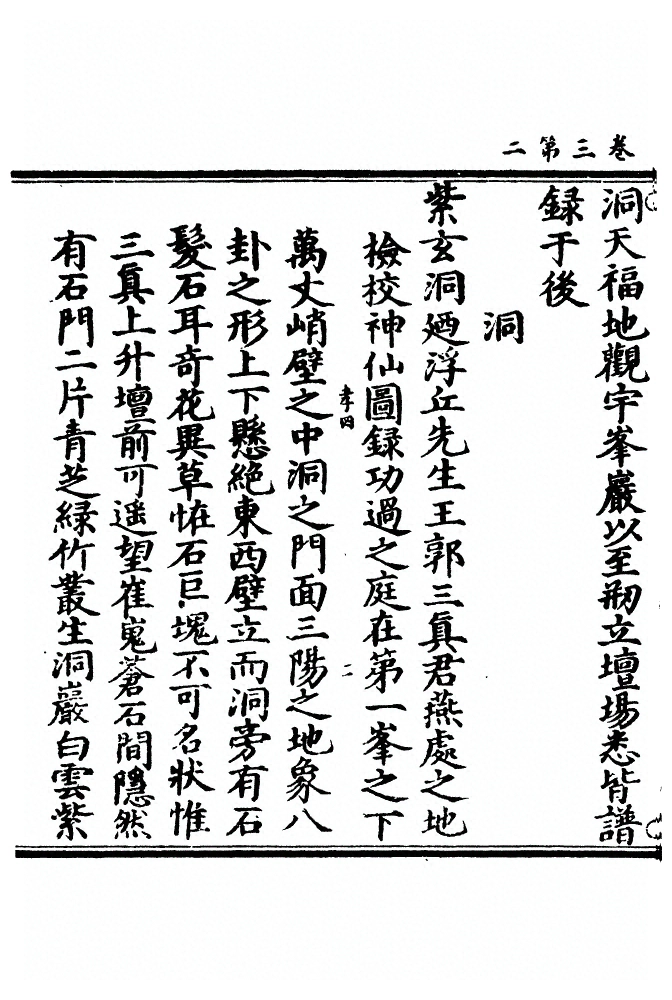 卷三第二
洞天福地觀宇峯巖以至剏立壇場悉皆譜
録于後
洞
紫玄洞廼浮丘先生王郭三真君燕處之地
檢校神仙圖録功過之庭在第一峯之下
孝四
二
萬丈峭壁之中洞之門面三陽之地象八
卦之形上下懸絶東西壁立而洞旁有石
髮石耳奇花異草恠石巨塊不可名狀惟
三真上升壇前可遥望崔嵬蒼石間隱然
有石門二片青芝緑竹叢生洞巖白雲紫